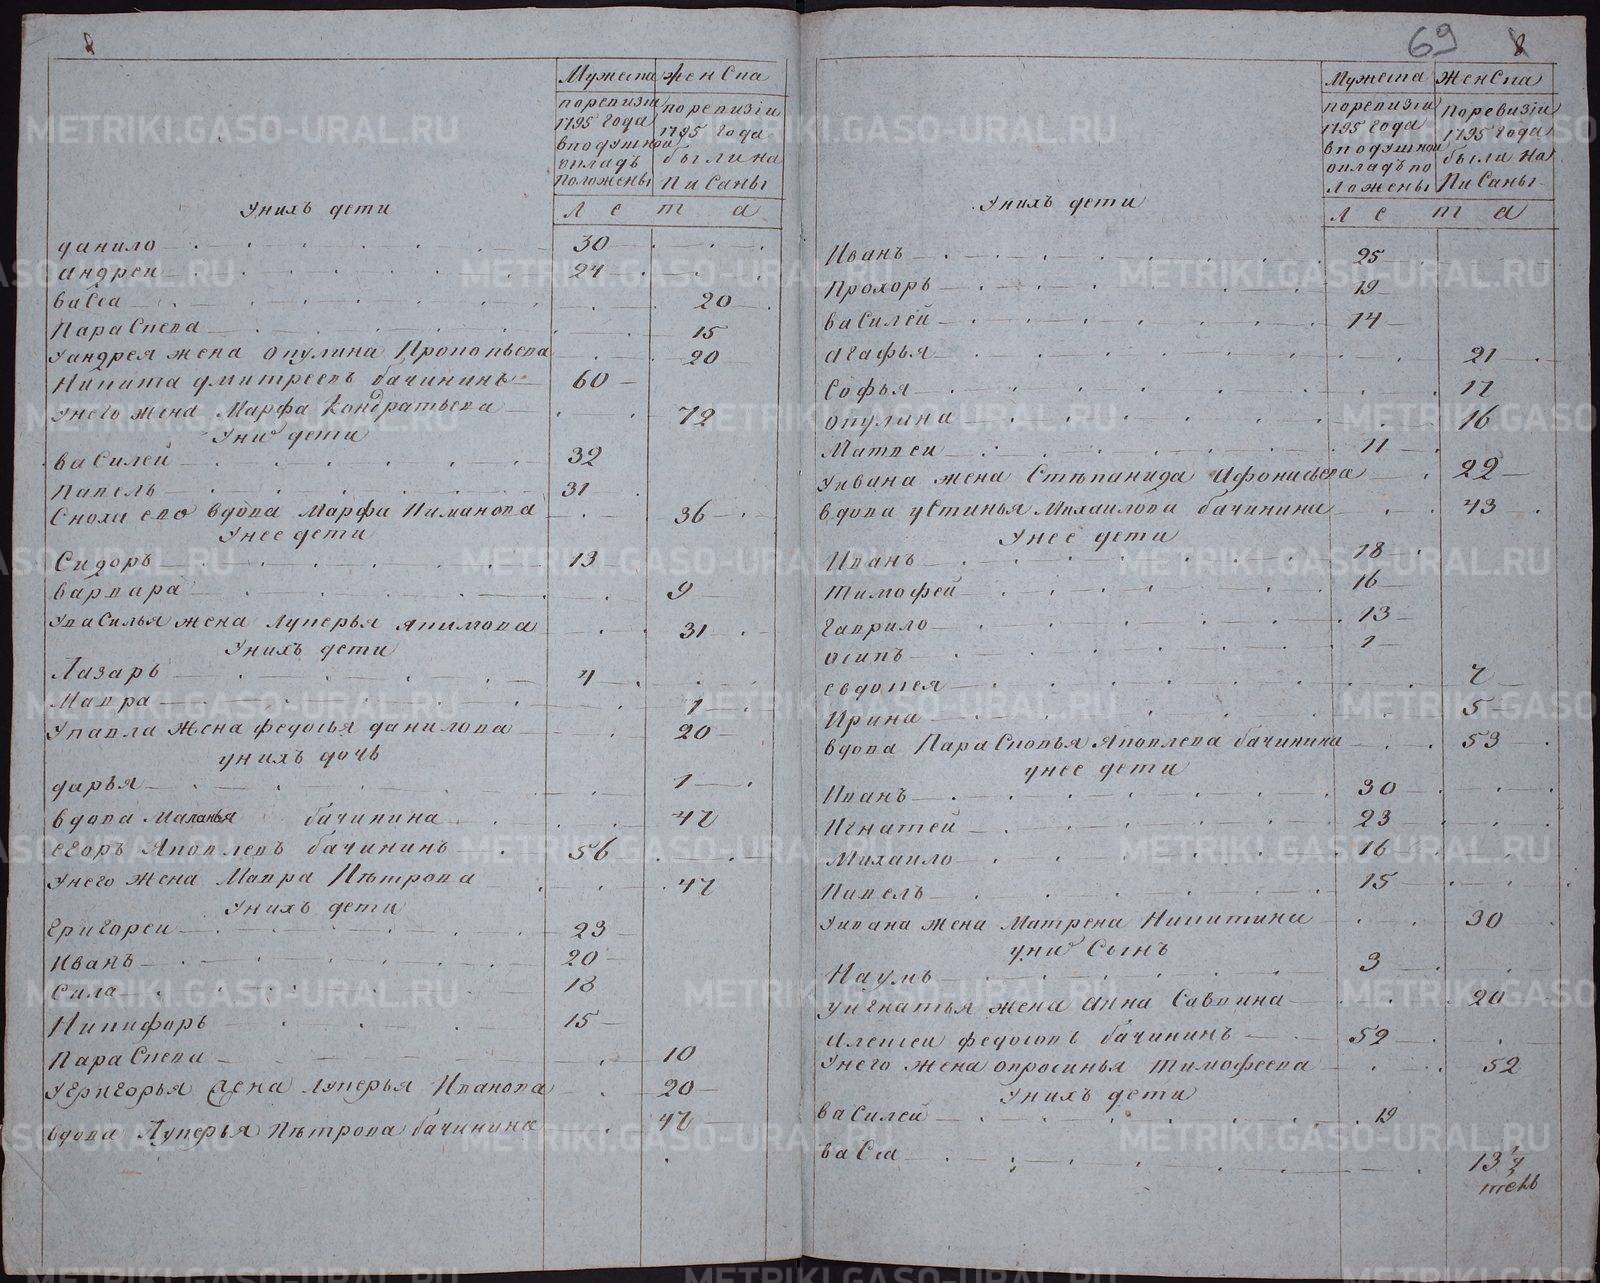 Мужеска женска
поревизіи
1795 года
вподушной
окладъ
положены
поревизіи
1795 года
были на
писаны
Лета
Унихъ дети
данило 30
андреи 24
васса 20
параскева 15
Уандрея жена окулина Прокопьева 20
Никита дмитреевъ бачининъ 60
Унего жена Марфа Кондратьева 72
Уних дети
василеи 32
Павелъ 31
Снохи ево вдова Марфа 36
Унее дети
Сидоръ 13
варвара 9
Увасилья жена Лукерья якимова 31
Унихъ дети
Лазарь 4
Мавра 1
Упавла жена федосья данилова 20
унихъ дочь
дарья 1
вдова Маланья бачинина 47
егоръ Яковлевъ бачининъ 56
Унего жена Мавра Пѣтрова 47
Унихъ дети
Григореи 23
Иванъ 20
Сила 18
Никифоръ 15
Параскева 10
Угригорья жена лукерья Иванова 20
вдова Лукерья Пѣтрова бачинина 47
69 8
Мужеска Женска
поревизіи
1795 года
вподушной
окладъ по
ложены
Поревизіи
1795 года
были на
писаны
Лета
Унихъ дети
Иванъ 25
Прохоръ 19
василей 14
агафья 21
Софья 17
окулина 16
Матвеи 11
Уивана жена Стѣпанида 22
вдова устинья Михаилова бачинина 43
Унее дети
Иванъ 18
тимофей 16
гаврило 13
осипъ 1
евдокея 7
Ирина 5
вдова Парасковья Яковлева бачинина 53
унее дети
Иванъ 30
Игнатей 23
Михаило 16
Павелъ 15
Уивана жена Матрена Никитина 30
уних Сынъ
Наумъ 3
Уигнатья жена анна Саввина 20
алексеи федосовъ бачининъ 52
Унего жена опросинья тимофеева 52
Унихъ дети
василей 19
васса 13
METRIKI.GASO-URAL.RU